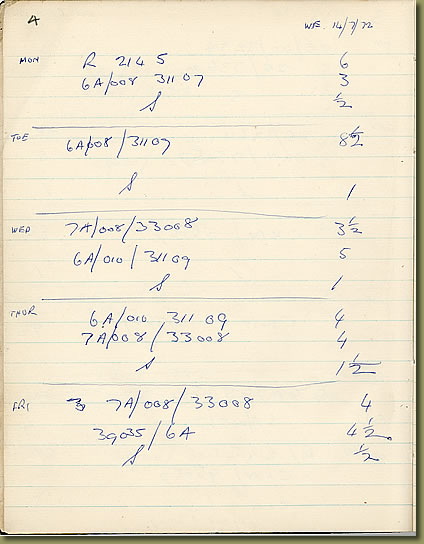 A W.E. 14/7/72
MON R 2145 6
6A/008 31107 3
S ½
TUE 6A/008/31107 8½
S 1
WED 7A/008/33008 3½
6A/010/31109 5
S 1
THUR 6A/010 31109 4
7A/008/33008 4
S 1½
FRI 7A/008/33008 4
39035/6A 4½
S ½